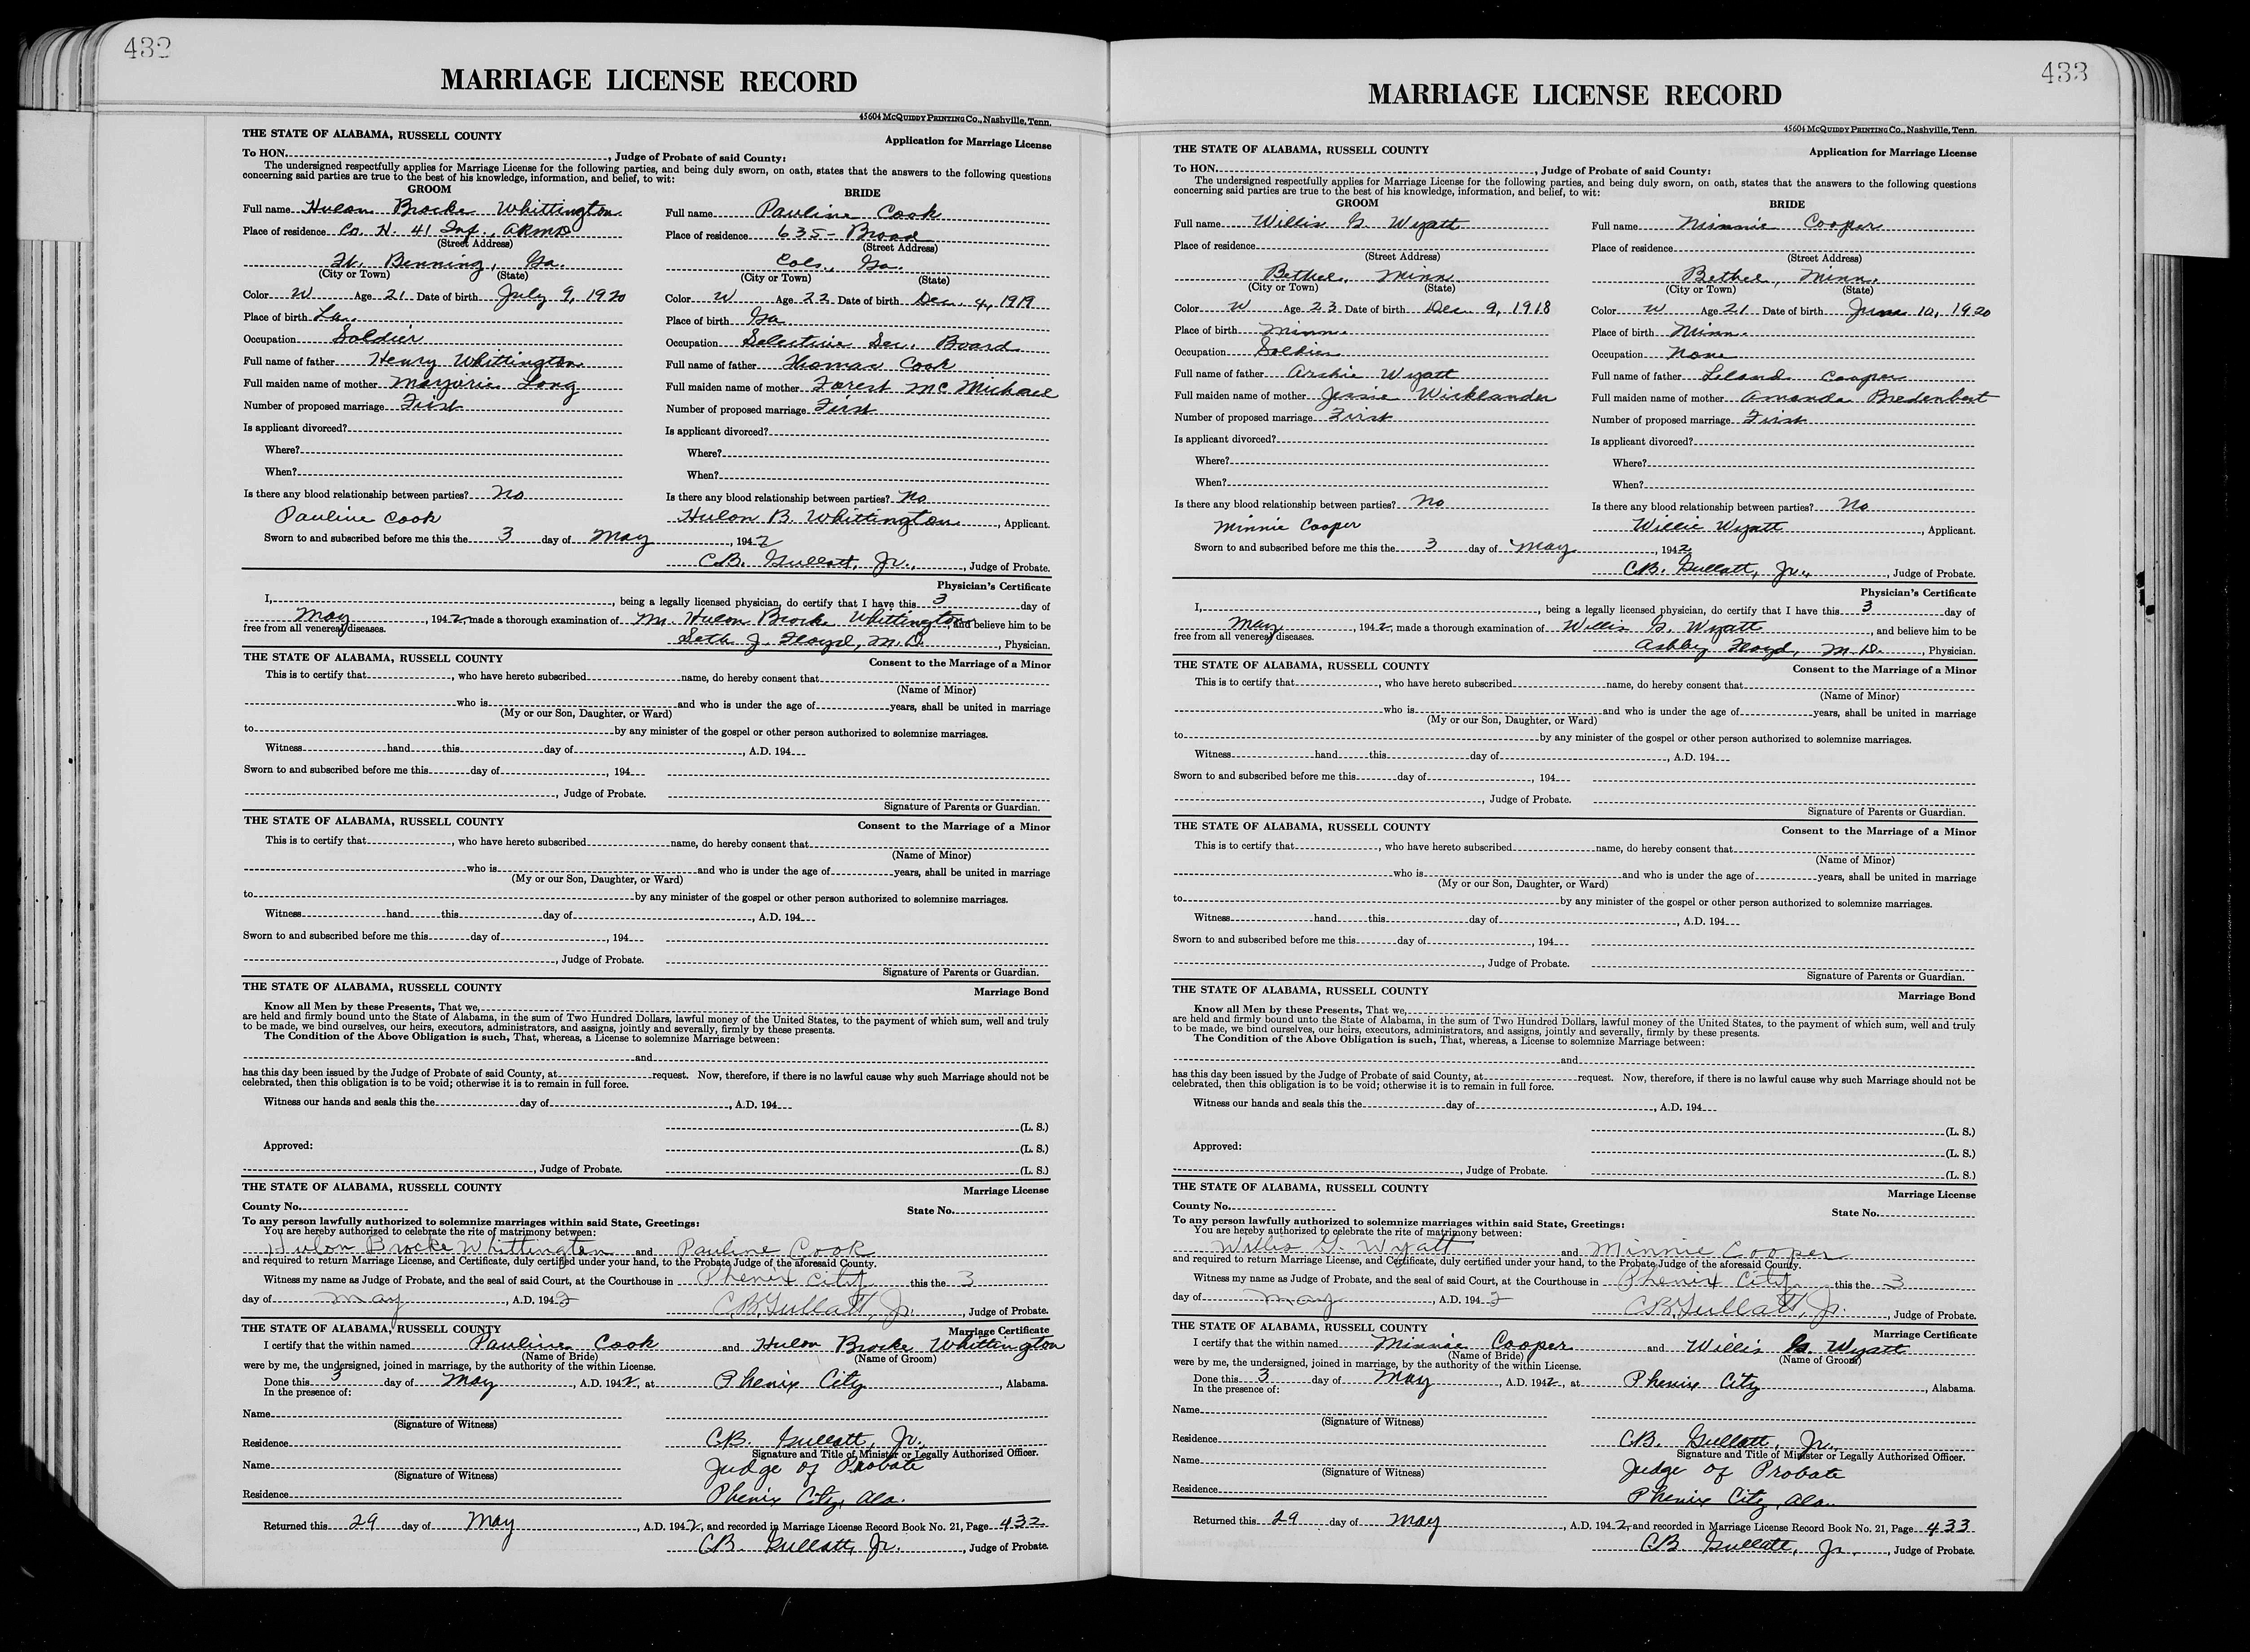 432
MARRIAGE LICENSE RECORD
45604 McQUIDDY PRINTING Co., Nashville, Tenn.
THE STATE OF ALABAMA, RUSSELL COUNTY
Application for Marriage License
To HON. , Judge of Probate of said County:
The undersigned respectfully applies for Marriage License for the following parties, and being duly sworn, on oath, states that the answers to the following questions
concerning said parties are true to the best of his knowledge, information, and belief, to wit:
GROOM BRIDE
Full name Hulon Brocke Whittington Full name Pauline Cook
Place of residence Co. H. 41 Inf., ARMD Place of residence 635- Broad
(Street Address) (Street Address)
Ft. Benning, Ga. Cols., Ga.
(City or Town) (State) (City or Town) (State)
Color W Age 21 Date of birth July 9, 1920 Color W Age 22 Date of birth Dec. 4, 1919
Place of birth La. Place of birth Ga
Occupation Soldier Occupation Selective Ser. Board
Full name of father Henry Whittington Full name of father Thomas Cook
Full maiden name of mother Marjorie Long Full maiden name of mother Forest McMichael
Number of proposed marriage First Number of proposed marriage First
Is applicant divorced? Is applicant divorced?
Where? Where?
When? When?
Is there any blood relationship between parties? No Is there any blood relationship between parties? No
Pauline Cook Hulon B. Whittington , Applicant.
Sworn to and subscribed before me this the 3 day of May , 1942
C.B. Gullatt, Jr., , Judge of Probate.
Physician's Certificate
I, , being a legally licensed physician, do certify that I have this 3 day of
May , 1942, made a thorough examination of Mr. Hulon Brocke Whittington, and believe him to be
free from all venereal diseases. Seth J. Floyd, M.D. , Physician.
THE STATE OF ALABAMA, RUSSELL COUNTY
Consent to the Marriage of a Minor
This is to certify that , who have hereto subscribed name, do hereby consent that
(Name of Minor)
who is and who is under the age of years, shall be united in marriage
(My or our Son, Daughter, or Ward)
to by any minister of the gospel or other person authorized to solemnize marriages.
Witness hand this day of , A.D. 194
Sworn to and subscribed before me this day of , 194
, Judge of Probate.
Signature of Parents or Guardian.
THE STATE OF ALABAMA, RUSSELL COUNTY
Consent to the Marriage of a Minor
This is to certify that , who have hereto subscribed name, do hereby consent that
(Name of Minor)
who is and who is under the age of years, shall be united in marriage
(My or our Son, Daughter, or Ward)
to by any minister of the gospel or other person authorized to solemnize marriages.
Witness hand this day of , A.D. 194
Sworn to and subscribed before me this day of , 194
, Judge of Probate.
Signature of Parents or Guardian.
THE STATE OF ALABAMA, RUSSELL COUNTY
Marriage Bond
Know all Men by these Presents, That we,
are held and firmly bound unto the State of Alabama, in the sum of Two Hundred Dollars, lawful money of the United States, to the payment of which sum, well and truly
to be made, we bind ourselves, our heirs, executors, administrators, and assigns, jointly and severally, firmly by these presents.
The Condition of the Above Obligation is such, That, whereas, a License to solemnize Marriage between:
and
has this day been issued by the Judge of Probate of said County, at request. Now, therefore, if there is no lawful cause why such Marriage should not be
celebrated, then this obligation is to be void; otherwise it is to remain in full force.
Witness our hands and seals this the day of , A.D. 194
(L. S.)
Approved: (L. S.)
, Judge of Probate. (L. S.)
THE STATE OF ALABAMA, RUSSELL COUNTY
Marriage License
County No. State No.
To any person lawfully authorized to solemnize marriages within said State, Greetings:
You are hereby authorized to celebrate the rite of matrimony between:
Hulon Brocke Whittington and Pauline Cook
and required to return Marriage License, and Certificate, duly certified under your hand, to the Probate Judge of the aforesaid County.
Witness my name as Judge of Probate, and the seal of said Court, at the Courthouse in Phenix City this the 3
day of May , A.D. 1942 C.B. Gullatt, Jr. , Judge of Probate.
THE STATE OF ALABAMA, RUSSELL COUNTY
Marriage Certificate
I certify that the within named Pauline Cook and Hulon Brocke Whittington
(Name of Bride) (Name of Groom)
were by me, the undersigned, joined in marriage, by the authority of the within License.
Done this 3 day of May , A.D. 1942, at Phenix City , Alabama.
In the presence of:
Name
(Signature of Witness)
Residence C.B. Gullatt, Jr.
Signature and Title of Minister or Legally Authorized Officer.
Name Judge of Probate
(Signature of Witness)
Residence Phenix City, Ala.
Returned this 29 day of May , A.D. 1942, and recorded in Marriage License Record Book No. 21, Page 432
C.B. Gullatt, Jr. , Judge of Probate.
433
MARRIAGE LICENSE RECORD
45604 McQUIDDY PRINTING Co., Nashville, Tenn.
THE STATE OF ALABAMA, RUSSELL COUNTY
Application for Marriage License
To HON. , Judge of Probate of said County:
The undersigned respectfully applies for Marriage License for the following parties, and being duly sworn, on oath, states that the answers to the following questions
concerning said parties are true to the best of his knowledge, information, and belief, to wit:
GROOM BRIDE
Full name Willis G. Wyatt Full name Minnie Cooper
Place of residence Place of residence
(Street Address) (Street Address)
Bethel, Minn Bethel, Minn.
(City or Town) (State) (City or Town) (State)
Color W Age 23 Date of birth Dec 9, 1918 Color W Age 21 Date of birth June 10, 1920
Place of birth Minn. Place of birth Minn.
Occupation Soldier Occupation None
Full name of father Archie Wyatt Full name of father Leland Cooper
Full maiden name of mother Jessie Wicklander Full maiden name of mother Amanda Bredenbert
Number of proposed marriage First Number of proposed marriage First
Is applicant divorced? Is applicant divorced?
Where? Where?
When? When?
Is there any blood relationship between parties? No Is there any blood relationship between parties? No
Minnie Cooper Willie Wyatt , Applicant.
Sworn to and subscribed before me this the 3 day of May , 1942
C.B. Gullatt, Jr., , Judge of Probate.
Physician's Certificate
I, , being a legally licensed physician, do certify that I have this 3 day of
May , 1942, made a thorough examination of Willis G. Wyatt , and believe him to be
free from all venereal diseases. Ashby Floyd, M.D. , Physician.
THE STATE OF ALABAMA, RUSSELL COUNTY
Consent to the Marriage of a Minor
This is to certify that , who have hereto subscribed name, do hereby consent that
(Name of Minor)
who is and who is under the age of years, shall be united in marriage
(My or our Son, Daughter, or Ward)
to by any minister of the gospel or other person authorized to solemnize marriages.
Witness hand this day of , A.D. 194
Sworn to and subscribed before me this day of , 194
, Judge of Probate.
Signature of Parents or Guardian.
THE STATE OF ALABAMA, RUSSELL COUNTY
Consent to the Marriage of a Minor
This is to certify that , who have hereto subscribed name, do hereby consent that
(Name of Minor)
who is and who is under the age of years, shall be united in marriage
(My or our Son, Daughter, or Ward)
to by any minister of the gospel or other person authorized to solemnize marriages.
Witness hand this day of , A.D. 194
Sworn to and subscribed before me this day of , 194
, Judge of Probate.
Signature of Parents or Guardian.
THE STATE OF ALABAMA, RUSSELL COUNTY
Marriage Bond
Know all Men by these Presents, That we,
are held and firmly bound unto the State of Alabama, in the sum of Two Hundred Dollars, lawful money of the United States, to the payment of which sum, well and truly
to be made, we bind ourselves, our heirs, executors, administrators, and assigns, jointly and severally, firmly by these presents.
The Condition of the Above Obligation is such, That, whereas, a License to solemnize Marriage between:
and
has this day been issued by the Judge of Probate of said County, at request. Now, therefore, if there is no lawful cause why such Marriage should not be
celebrated, then this obligation is to be void; otherwise it is to remain in full force.
Witness our hands and seals this the day of , A.D. 194
(L. S.)
Approved: (L. S.)
, Judge of Probate. (L. S.)
THE STATE OF ALABAMA, RUSSELL COUNTY
Marriage License
County No. State No.
To any person lawfully authorized to solemnize marriages within said State, Greetings:
You are hereby authorized to celebrate the rite of matrimony between:
Willis G. Wyatt and Minnie Cooper
and required to return Marriage License, and Certificate, duly certified under your hand, to the Probate Judge of the aforesaid County.
Witness my name as Judge of Probate, and the seal of said Court, at the Courthouse in Phenix City this the 3
day of May , A.D. 1942 C.B. Gullatt, Jr. , Judge of Probate.
THE STATE OF ALABAMA, RUSSELL COUNTY
Marriage Certificate
I certify that the within named Minnie Cooper and Willis G. Wyatt
(Name of Bride) (Name of Groom)
were by me, the undersigned, joined in marriage, by the authority of the within License.
Done this 3 day of May , A.D. 1942, at Phenix City , Alabama.
In the presence of:
Name
(Signature of Witness)
Residence C.B. Gullatt, Jr.
Signature and Title of Minister or Legally Authorized Officer.
Name Judge of Probate
(Signature of Witness)
Residence Phenix City, Ala.
Returned this 29 day of May , A.D. 1942, and recorded in Marriage License Record Book No. 21, Page 433
C.B. Gullatt, Jr. , Judge of Probate.